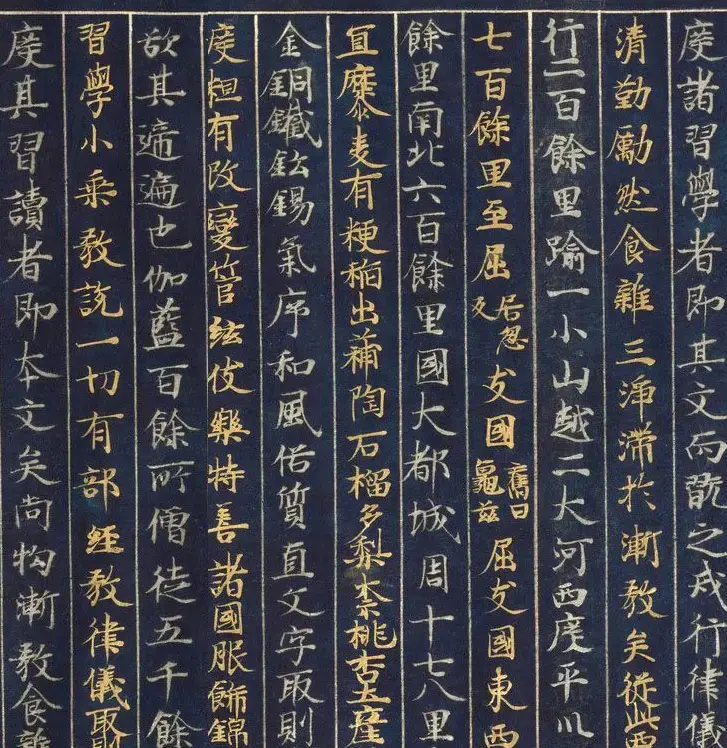 度諸習學者即其文而翫之戒行律儀
清勤勵然食雜三淨滯於漸教矣從此西
行二百餘里踰一小山越二大河西度平川
七百餘里至屈居忽反支國舊曰龜茲屈支國東西
餘里南北六百餘里國大都城周十七八里
宜糜麦有粳稻出蒲陶石榴多梨柰桃杏土產
金銅鐵鉛錫氣序和風俗質直文字取則
度粗有改變管絃伎樂特善諸國服飾錦
欲其遞遍也伽藍百餘所僧徒五千餘
習學小乘教說一切有部經教律儀取
度其習讀者即本文矣尚拘漸教食雜